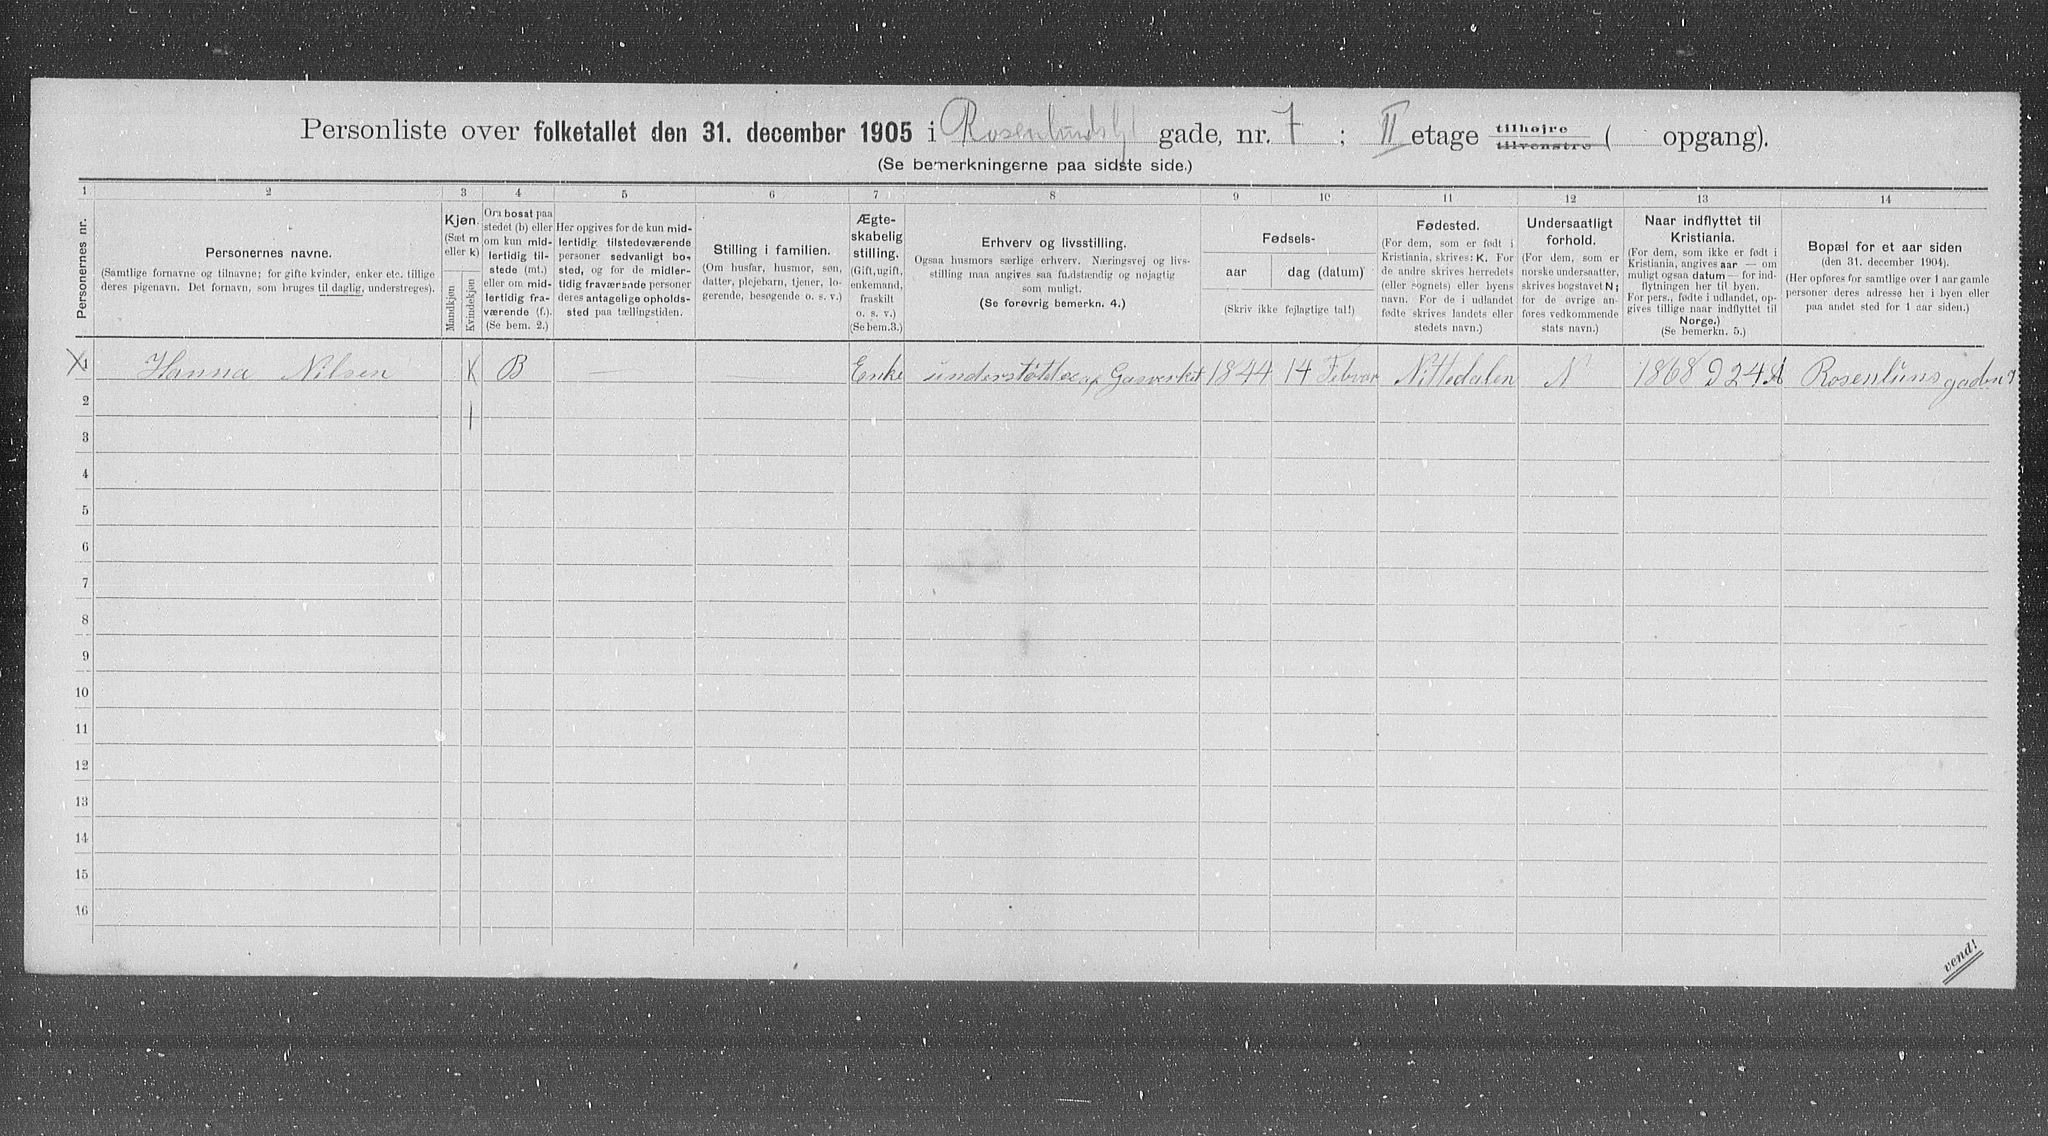 Personliste over folketallet den 31. december 1905 i Rosenlundsgt gade, nr. 7 ; II etage tilhøjre tilvenstre ( opgang).
(Se bemerkningerne paa sidste side.)
1 2 3 4 5 6 7 8 9 10 11 12 13 14
Personernes nr.
Personernes navne.
(Samtlige fornavne og tilnavne; for gifte kvinder, enker etc. tillige
deres pigenavn. Det fornavn, som bruges til daglig, understreges).
Kjøn.
(Sæt m
eller k)
Mandkjøn
Kvindekjøn
Om bosat paa
stedet (b) eller
om kun mid-
lertidig til-
stede (mt.)
eller om mid-
lertidig fra-
værende (f.).
(Se bem. 2.)
Her opgives for de kun mid-
lertidig tilstedeværende
personer sedvanligt bo-
sted, og for de midler-
tidig fraværende personer
deres antagelige opholds-
sted paa tællingstiden.
Stilling i familien.
(Om husfar, husmor, søn,
datter, plejebarn, tjener, lo-
gerende, besøgende o. s. v.)
Ægte-
skabelig
stilling.
(Gift, ugift,
enkemand,
fraskilt
o. s. v.)
(Se bem. 3.)
Erhverv og livsstilling.
Ogsaa husmors særlige erhverv. Næringsvej og livs-
stilling maa angives saa fuldstændig og nøjagtig
som muligt.
(Se forøvrig bemerkn. 4.)
Fødsels-
aar
dag (datum)
(Skriv ikke fejlagtige tal!)
Fødested.
(For dem, som er født i
Kristiania, skrives: K. For
de andre skrives herredets
(eller sognets) eller byens
navn. For de i udlandet
fødte skrives landets eller
stedets navn.)
Undersaatligt
forhold.
(For dem, som er
norske undersaatter,
skrives bogstavet N;
for de øvrige an-
føres vedkommende
stats navn.)
Naar indflyttet til
Kristiania.
(For dem, som ikke er født i
Kristiania, angives aar — om
muligt ogsaa datum — for ind-
flytningen her til byen.
For pers., fødte i udlandet, op-
gives tillige naar indflyttet til
Norge.)
(Se bemerkn. 5.)
Bopæl for et aar siden
(den 31. december 1904).
(Her opføres for samtlige over 1 aar gamle
personer deres adresse her i byen eller
paa andet sted for 1 aar siden.)
X 1 Hanna Nilsen K B — — Enke understøttes af Gasverket 1844 14 Febuar Nittedalen N 1868 Rosenluns
gaden 7
2 1
3
4
5
6
7
8
9
10
11
12
13
14
15
16
vend!